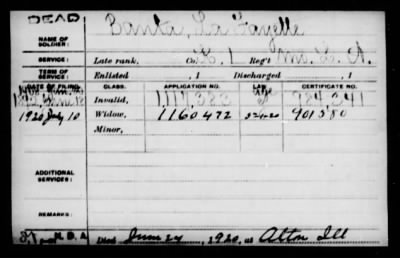 DEAD
NAME OF SOLDIER: Banta, La Fayette
SERVICE: Late rank, Co. 1 Reg't Mo. L. A.
TERM OF SERVICE: Enlisted , 1 Discharged , 1
DATE OF FILING. CLASS. APPLICATION NO. CERTIFICATE NO.
Invalid, 1,114,383 984,341
1920 July 10 Widow, 1160472 901580
Minor,
ADDITIONAL SERVICES:
REMARKS:
Died June 24, 1920, at Alton Ill